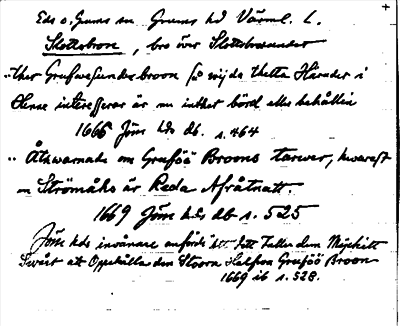 Eds o. Grums sn. Grums hd Värml. L.
Slottsbron, bro över Slottsbrosundet
"ther Grufwesundes broon så wijda thetta Häradet i
denne interesserar är nu intket börd eller behållin
1665 Jöns hds db. s. 464
" Åthwarnades om Gruföö Broons tarwer, hwaraft
en Strömåhs är Reda Afråtnatt.
1669 Jöns hds db s. 525
Jöns hds invånare anförde "att dett Faller dem Mijckitt
Swårt att Oppehålla den Stoora Halfwa Gruföö Broon
1669 ib s. 528.